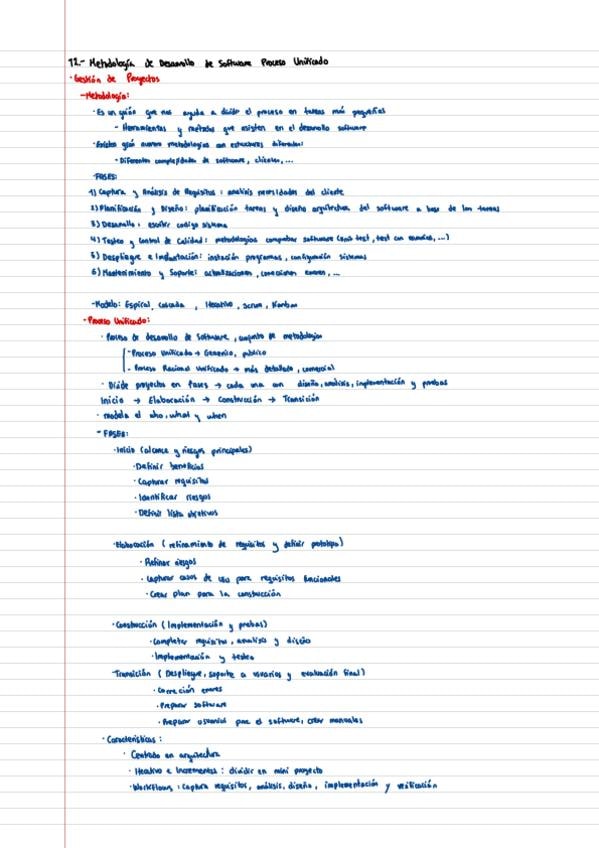 12.- Metodología de Desarrollo de Software Proceso Unificado
· Gestión de Proyectos
- Metodología:
· Es un guión que nos ayuda a dividir el proceso en tareas más pequeñas
- Herramientas y métodos que asisten en el desarrollo software
· Existen gran numero metodologías con estructuras diferentes:
- Diferentes complejidades de software, clientes, ...
· FASES:
1) Captura y Análisis de Requisitos: analisis necesidades del cliente
2) Planificación y Diseño: planificación tareas y diseño arquitectura del software a base de las tareas
3) Desarrollo: escribir codigo sistema
4) Testeo y Control de Calidad: metodologías comprobar software (unit test, test con usuarios, ...)
5) Despliegue e Implantación: instación programas, configuración sistemas
6) Mantenimiento y Soporte: actualizaciones, correcciones errores, ...
- Modelo: Espiral, cascada, Iterativo, Scrum, Kanban
· Proceso Unificado:
· Proceso de desarollo de Software, conjunto de metodologías
- Proceso Unificado → Generico, publico
- Proceso Racional Unificado → más detallado, comercial
· Divide proyectos en Fases → cada una con diseño, analisis, inplementación y pruebas
Inicio → Elaboración → Construcción → Transición
· modela el who, what y when
- FASES:
· Inicio (alcance y riesgos principales)
· Definir beneficios
· Capturar requisitos
· Identificar riesgos
· Definir lista objetivos
· Elaboración (refinamiento de requisitos y definir prototipo)
· Refinar riesgos
· capturar casos de uso para requisitos funcionales
· Crear plan para la construcción
· Construcción (Implementación y pruebas)
· Completar requisitos, analisis y diseño
· Implementación y testeo
Transición (Despliegue, soporte a usuarios y evaluación final)
· Correción errores
· Preparar software
· Preparar usuarios para el software, crear manuales
· Características:
· Centrado en arquitectura
· Iterativo e Incremental: dividir en mini proyecto
· Workflows: captura requisitos, análisis, diseño, implementación y verificación